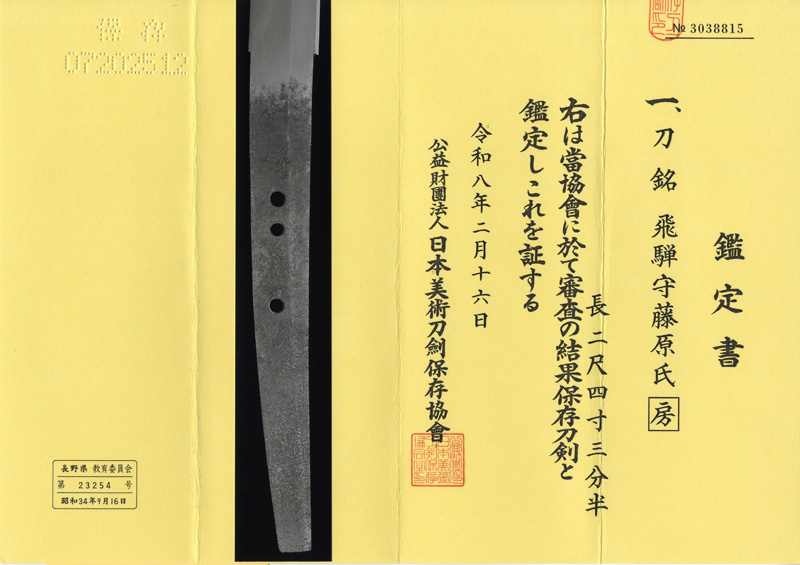 № 3038815
鑑定書
一、刀 銘 飛騨守藤原氏房
長二尺四寸三分半
右は當協會に於て審査の結果保存刀剣と
鑑定しこれを証する
令和八年二月十六日
公益財團法人日本美術刀劍保存協會
保存
07202512
長野県 教育委員会
第 23254 号
昭和34年9月16日